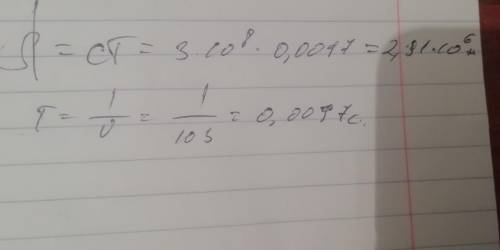 λ = cT = 3·10⁸·0,0097 = 2,91·10⁶ м
T = 1/ν = 1/103 = 0,0097 с.